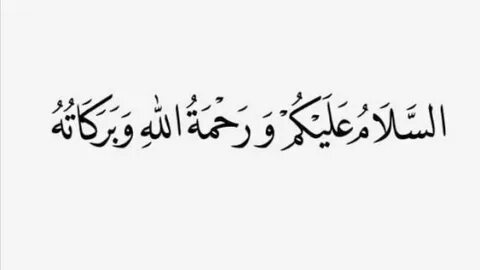 السَّلَامُ عَلَيْكُمْ وَ رَحْمَةُ اللهِ وَبَرَكَاتُهُ